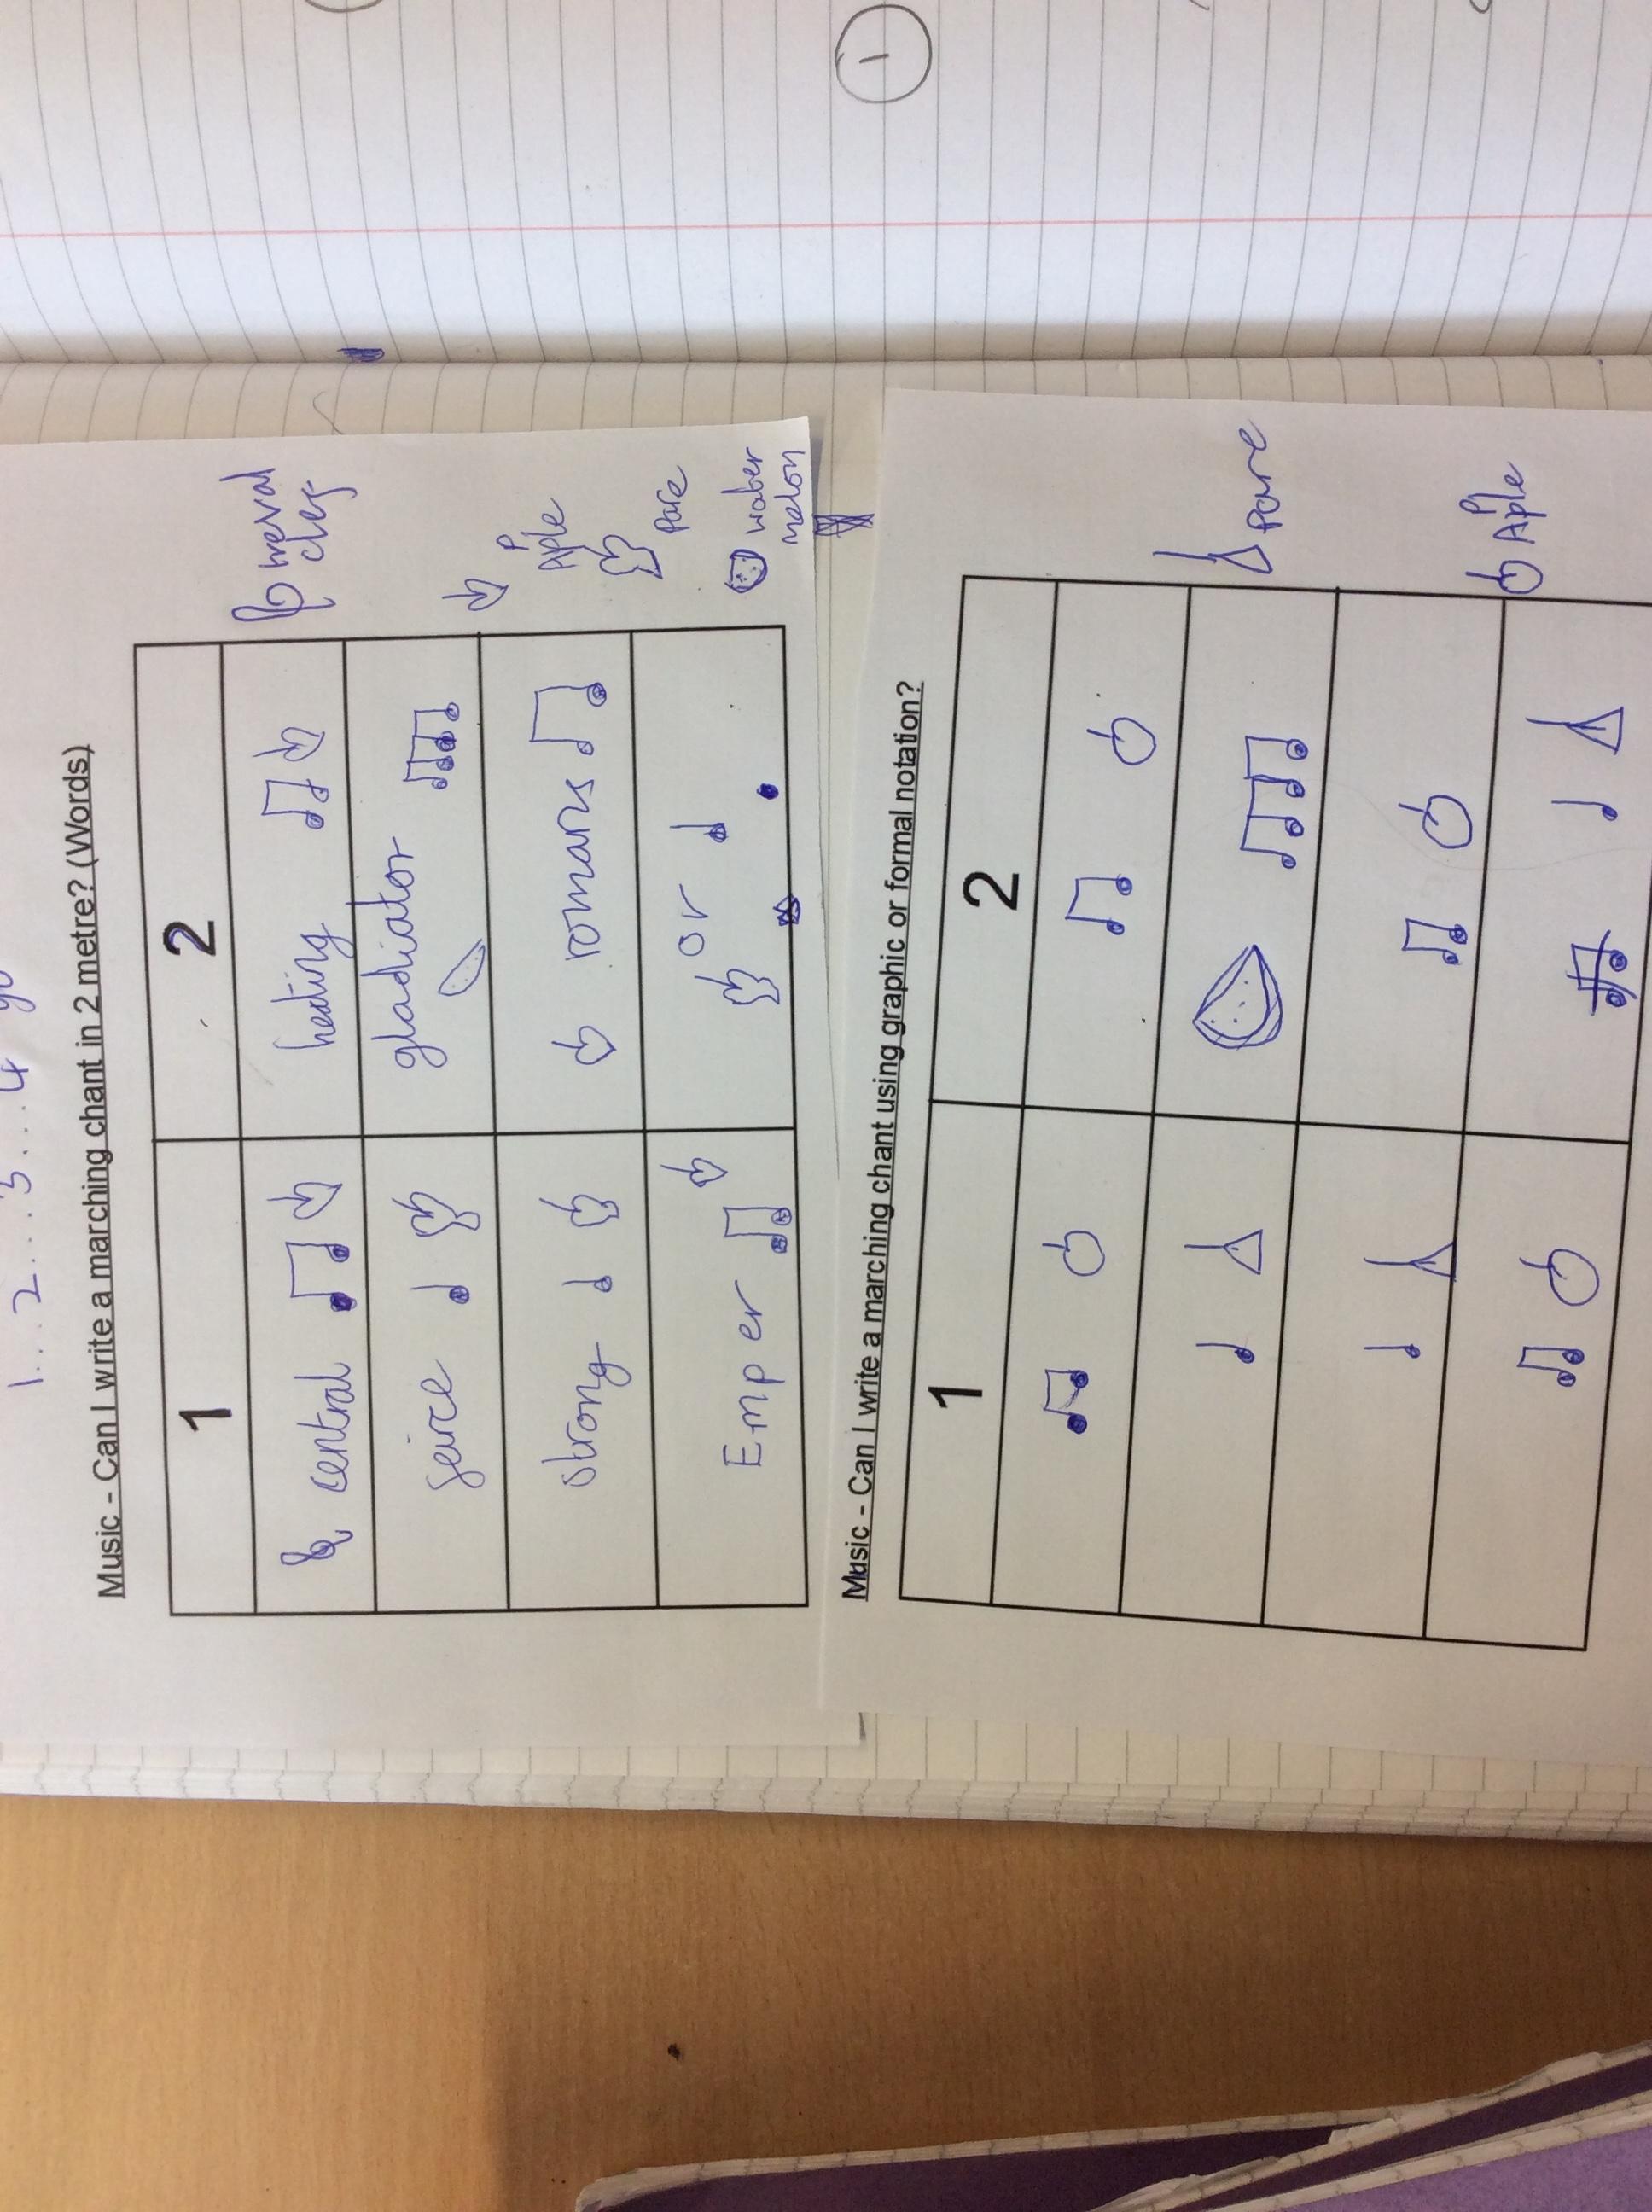 1...2...3...4
Music - Can I write a marching chant in 2 metre? (Words)
1 2
central heating
gladiator
strong romans
Emp er or
Aple
P
Pare
melon
Music - Can I write a marching chant using graphic or formal notation?
1 2
Pare
Aple
P
1